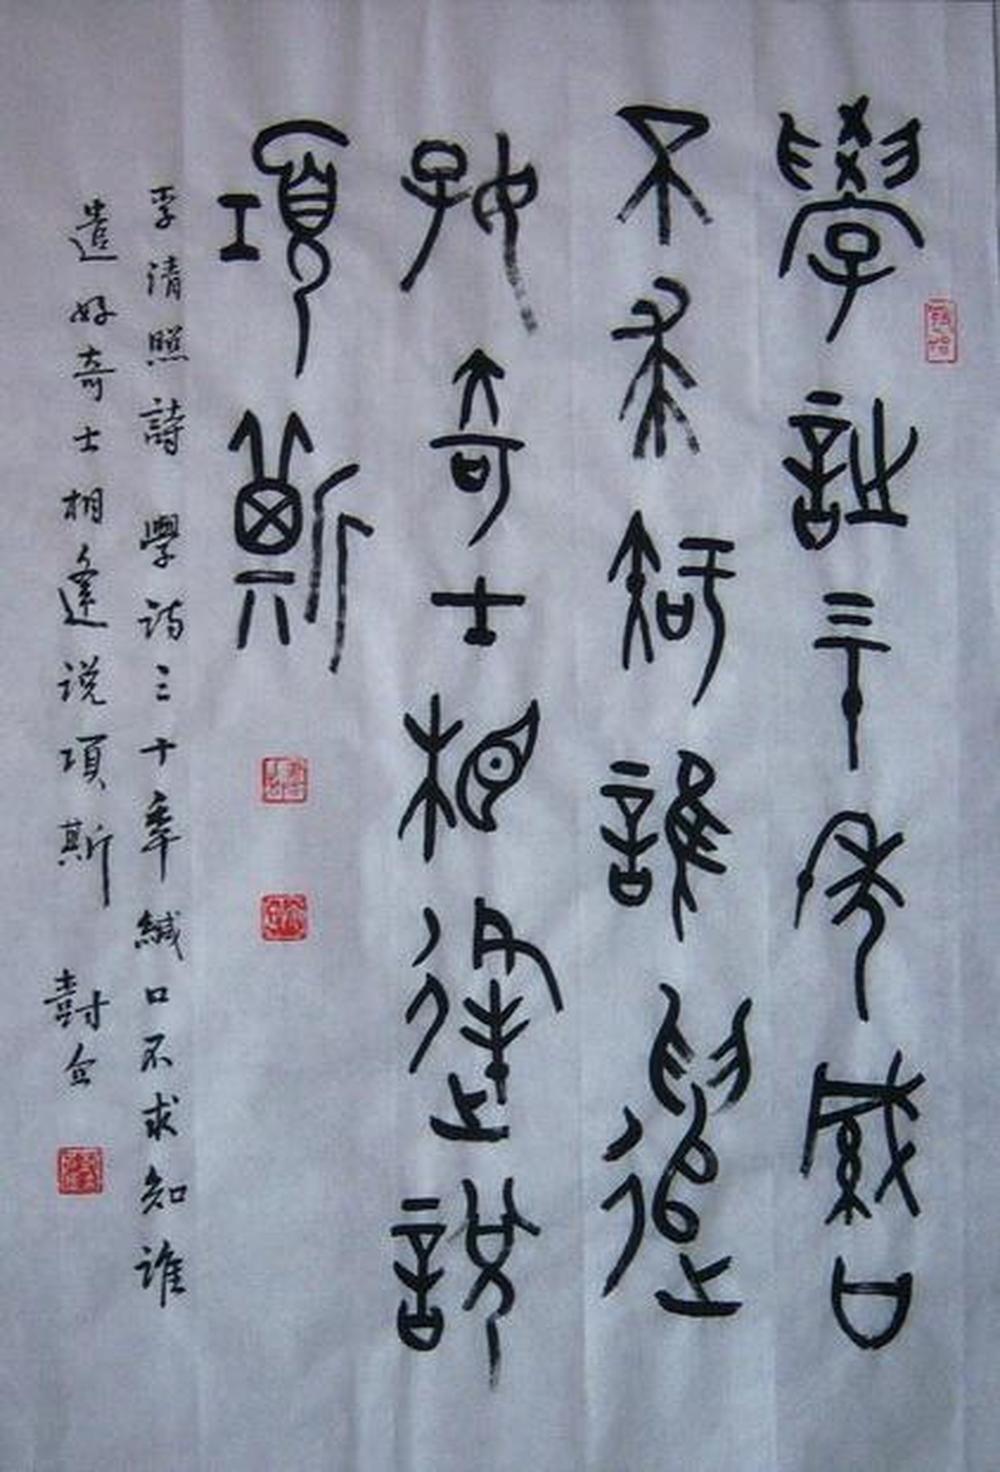 學詩三十年緘口
不求知誰遣
好奇士相逢說
項斯
李清照詩 學詩三十年緘口不求知誰
遣好奇士相逢说項斯